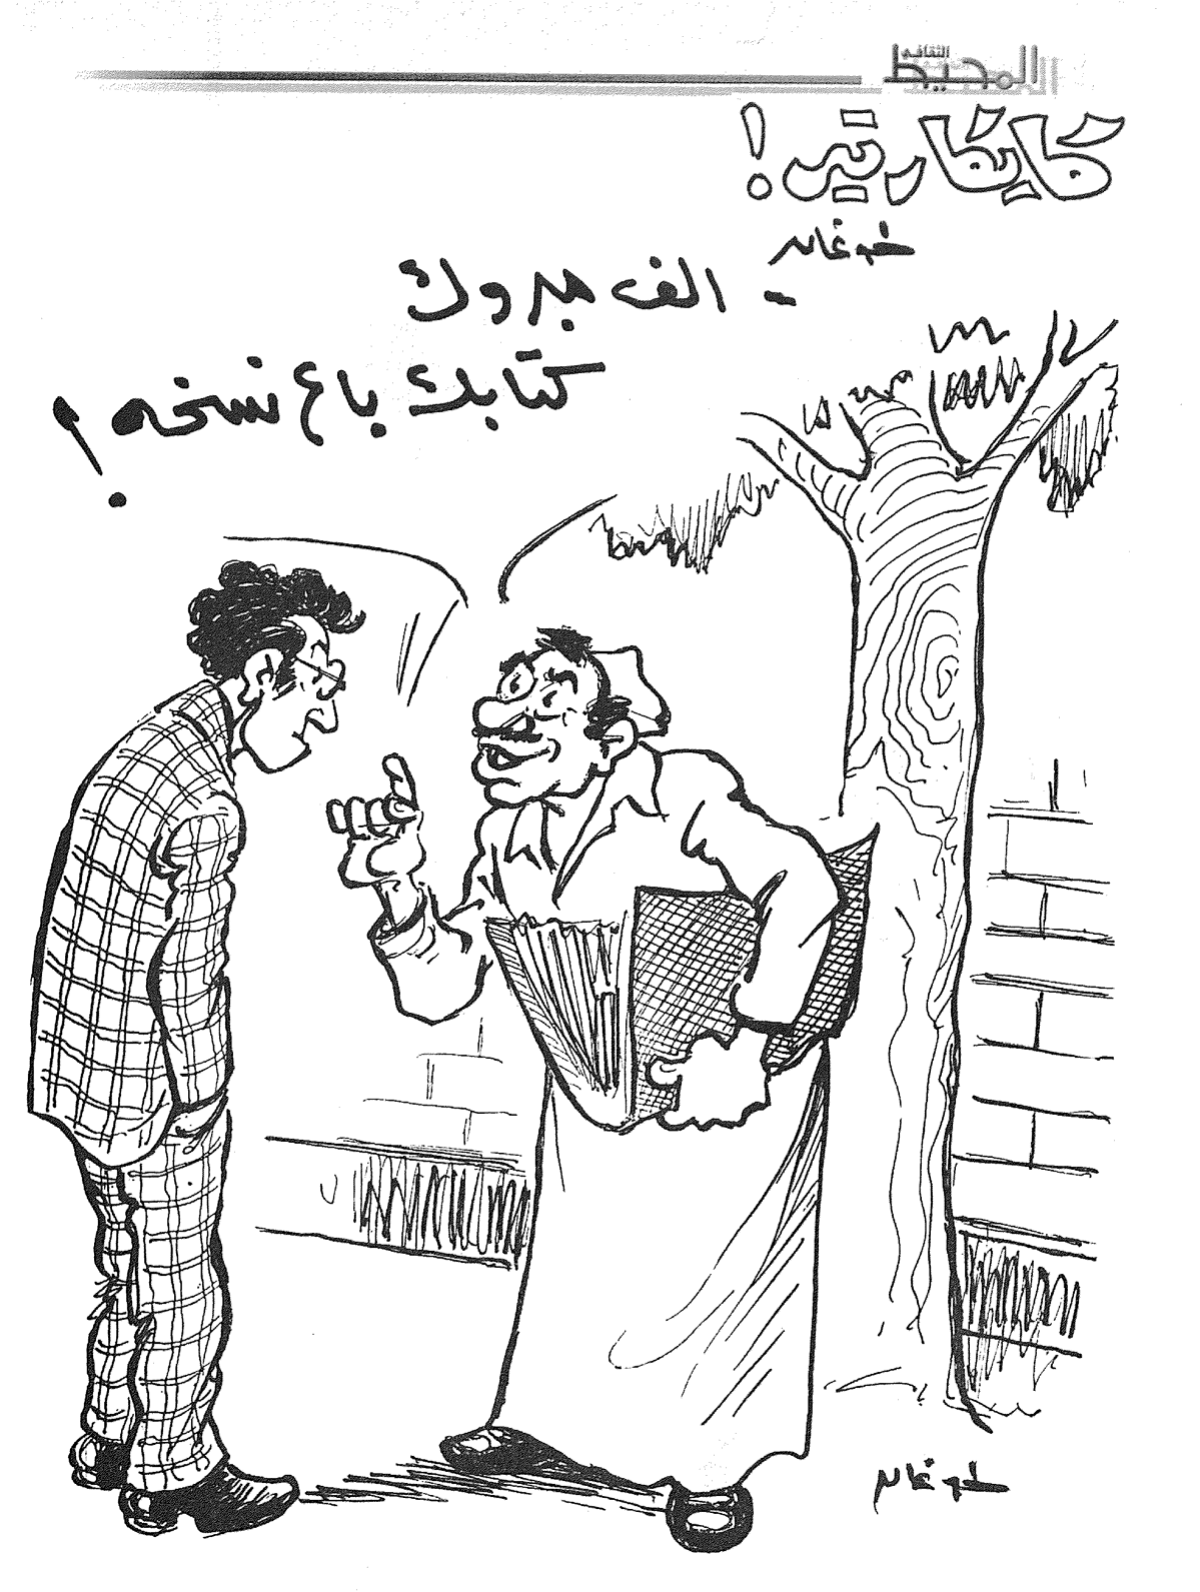 المحيط الثقافي
كايكارتير!
طوغان
- الف مبروك
كتابك باع نسخه !
طوغان